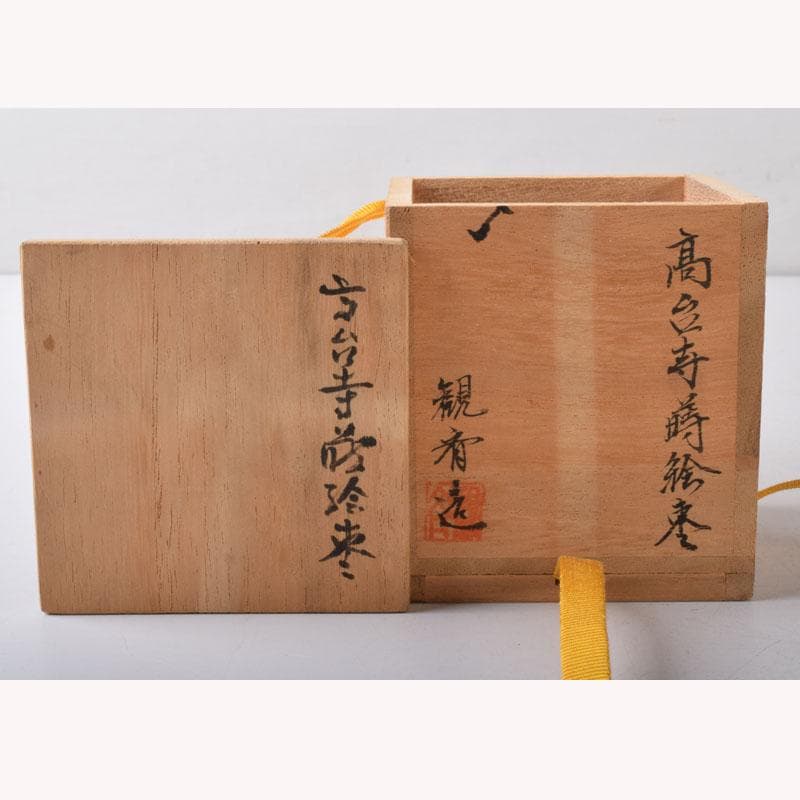 高台寺蒔絵棗
髙台寺蒔絵棗
観斎造